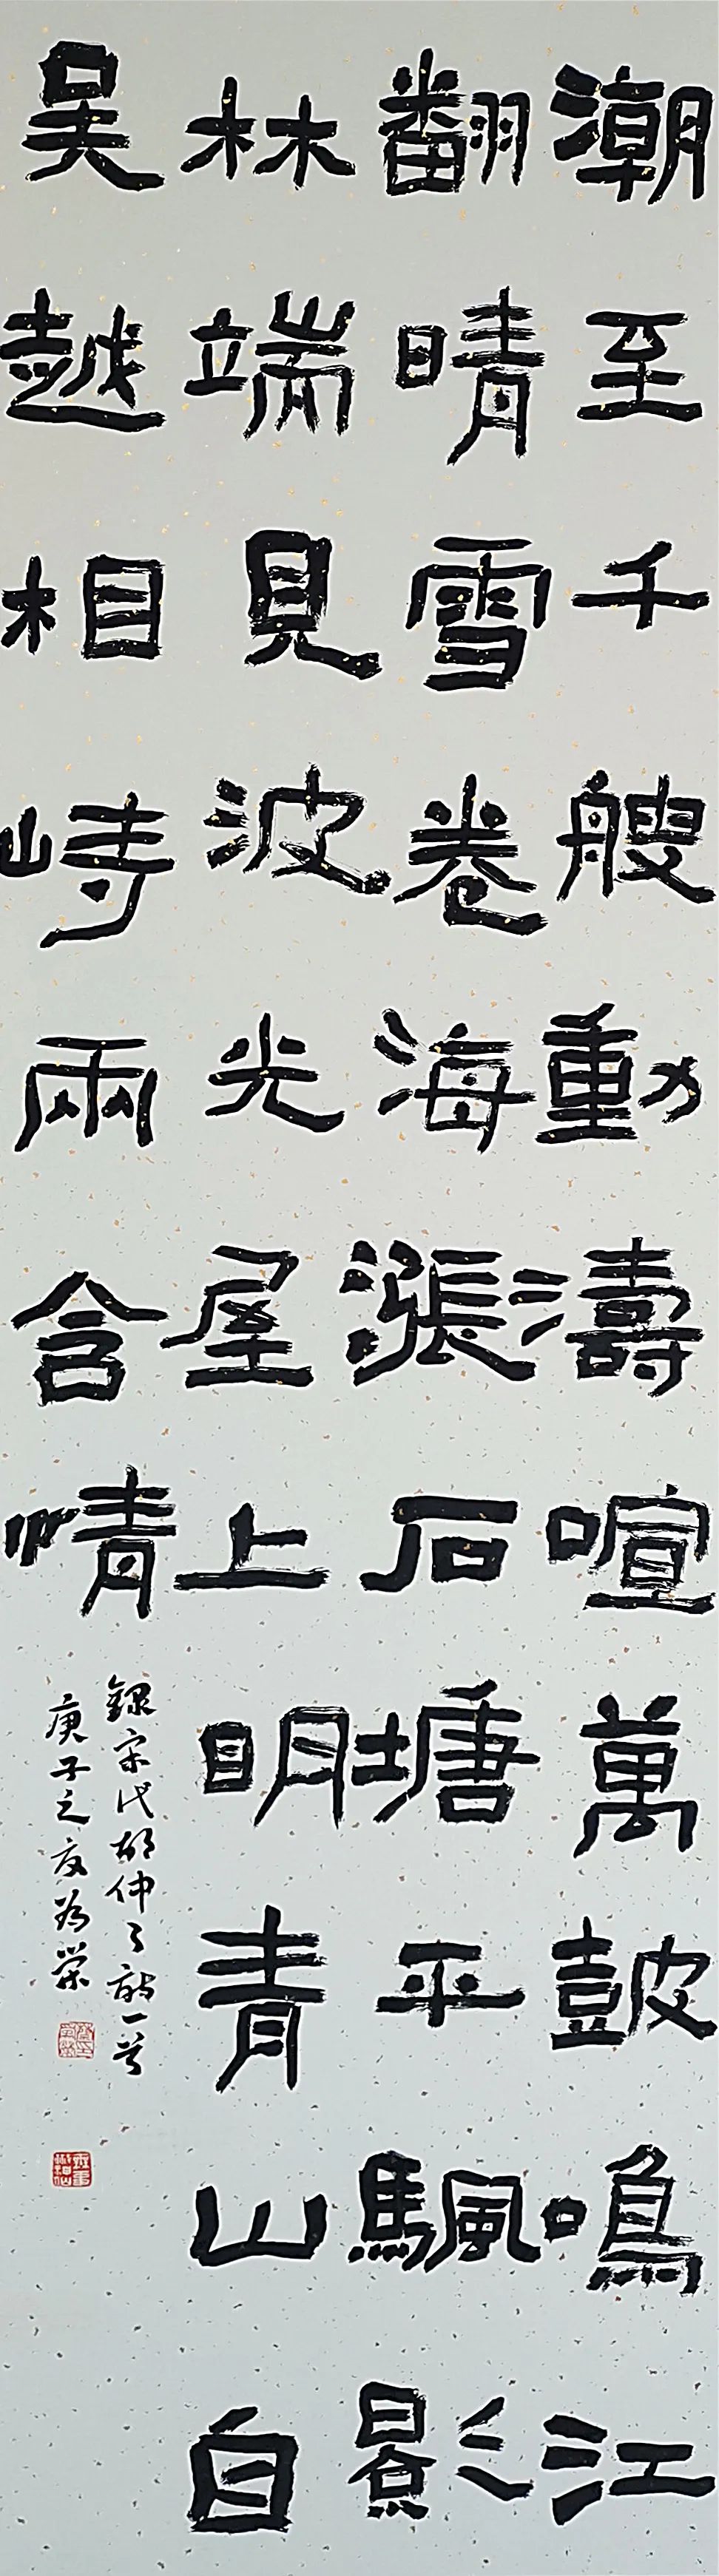 潮至千艘動濤喧萬鼓鳴江
翻晴雪卷海漲石塘平颿影
林端見波光屋上明青山自
吳越相峙兩含情
錄宋代胡仲弓詩一首
庚子之夏為榮